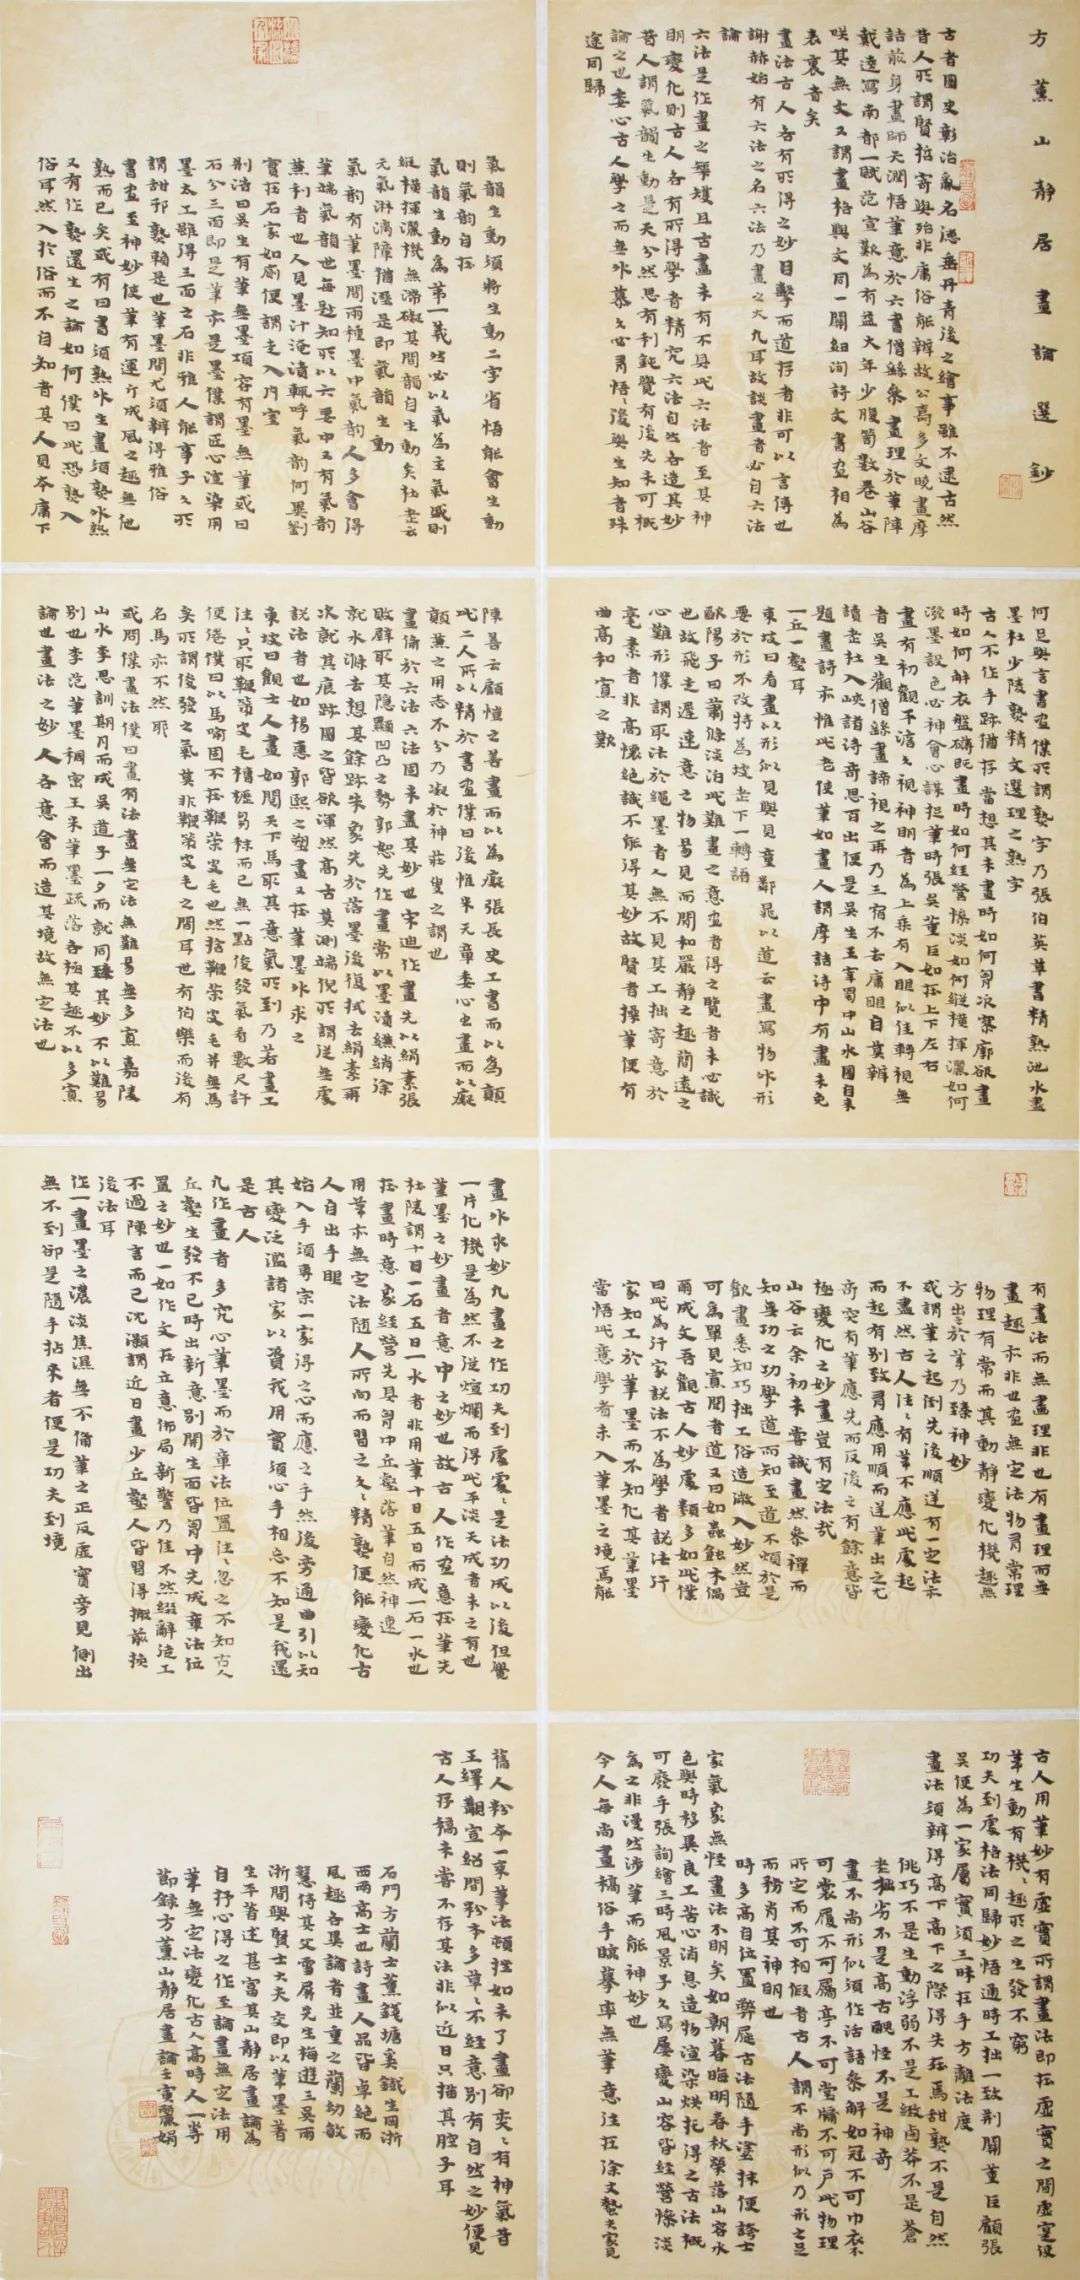 方薰山靜居畫論選鈔
古者圖史彰治亂名德垂丹青後之繪事雖不逮古然
昔人所謂賢哲寄興殆非庸俗能辨故公壽多文曉畫摩
詰前身畫師元潤悟筆意於六書僧繇參畫理於筆陣
戴逵寫南都一賦范宣歎為有益大年少腹笥數卷山谷
咲其無文又謂畫格與文同一關紐洵詩文書畫相為
表裏者矣
畫法古人各有所得之妙目擊而道存者非可以言傳也
謝赫始有六法之名六法乃畫之大凡耳故談畫者必自六法
論
六法是作畫之華矱且古畫未有不具此六法者至其神
明變化則古人各有所得學者精究六法自然各造其妙
昔人謂氣韻生動是天分然思有利鈍覺有後先未可概
論之也委心古人學之而無外慕久必有悟悟後與生知者殊
途同歸
氣韻生動須將生動二字省悟能會生動
則氣韵自在
氣韻生動為第一義然必以氣為主氣盛則
縱橫揮灑機無滯礙其間韻自生動矣杜老云
元氣淋漓障猶溼是即氣韻生動
氣韵有筆墨間兩種墨中氣韵人多會得
筆端氣韻世每尟知所以六要中又有氣韵
兼力者也人見墨汁淹漬輒呼氣韵何異劉
實在石家如廁便謂走入內室
荊浩曰吳生有筆無墨項容有墨無筆或曰
石分三面即是筆亦是墨僕謂匠心渲染用
墨太工雖得三面之石非雅人能事子久所
謂甜邪熟賴是也筆墨間尤須辨得雅俗
書畫至神妙使筆有運斤成風之趣無他
熟而已矣或有曰書須熟外生畫須熟外熟
又有作熟還生之論如何僕曰此恐熟入
俗耳然入於俗而不自知者其人見本庸下
何足與言書畫僕所謂熟字乃張伯英草書精熟池水盡
墨杜少陵熟精文選理之熟字
古人不作手跡猶存當想其未畫時如何胸次寥廓欲畫
時如何解衣盤礴既畫時如何經營慘淡如何縱橫揮灑如何
潑墨設色必神會心謀捉筆時張吳董巨如在上下左右
畫有初觀平澹久視神明者為上乘有入眼似佳轉視無
意者吳生觀僧繇畫諦視之再乃三宿不去庸眼自莫辨
讀老杜入峽諸詩奇思百出便是吳生王宰蜀中山水圖自來
題畫詩亦惟此老使筆如畫人謂摩詰詩中有畫未免
一丘一壑耳
東坡曰看畫以形似見與兒童鄰晁以道云畫寫物外形
要於形不改特為坡老下一轉語
歐陽子曰蕭條淡泊此難畫之意畫者得之覽者未必識
也故飛走遲速意之物易見而閒和嚴靜之趣簡遠之
心難形僕謂取法於繩墨者人無不見其工拙寄意於
毫素者非高懷絕識不能得其妙故賢者操筆便有
曲高和寡之歎
陳善云顧愷之善畫而以為癡張長史工書而以為顛
此二人所以精於書畫僕曰後惟米元章委心書畫而以癡
顛兼之用志不分乃凝於神莊叟之謂也
畫備於六法六法固未盡其妙也宋迪作畫先以絹素張
敗壁取其隱顯凹凸之勢郭恕先作畫常以墨漬縑綃徐
就水滌去想其餘跡朱象先於落墨後復拭去絹素再
次就其痕跡圖之皆欲渾然高古莫測端倪所謂從無處
說法者也如楊惠郭熙之塑畫又在筆墨外求之
東坡曰觀士人畫如閱天下馬取其意氣所到乃若畫工
往往只取鞭策皮毛槽櫪芻秣而已無一點俊發氣看數尺許
便倦僕曰以馬喻固不在鞭策皮毛也然捨鞭策皮毛並無馬
矣所謂俊發之氣莫非鞭策皮毛之間耳世有伯樂而後有
名馬亦不然耶
或問僕畫法僕曰畫有法畫無定法無難易無多寡嘉陵
山水李思訓期月而成吳道子一夕而就同臻其妙不以難易
別也李范筆墨稠密王米筆墨疎落各極其趣不以多寡
論也畫法之妙人各意會而造其境故無定法也
有畫法而無畫理非也有畫理而無
畫趣亦非也畫無定法物有常理
物理有常而其動靜變化機趣無
方出之於筆乃臻神妙
或謂筆之起倒先後順逆有一定法亦
不盡然古人往往有筆不應此處起
而起有別致有應用順而逆筆出之尤
奇突有筆應先而反後之有餘意皆
極變化之妙畫豈有定法哉
山谷云余初未嘗識畫然參禪而
知無功之功學道而知至道不煩於是
歡畫悉知巧拙工俗造微入妙然豈
可為單見寡聞者道又曰如蟲蝕木偶
爾成文吾觀古人妙處類多如此僕
曰此為行家說法不為學者說法行
家知工於筆墨而不知化其筆墨
當悟此意學者未入筆墨之境焉能
畫外求妙凡畫之作功夫到處處處是法功成以後但覺
一片化機是為然不從煊爛而得此平淡天成者未之有也
筆墨之妙畫者意中之妙也故古人作畫意在筆先
杜陵謂十日一石五日一水者非用筆十日五日而成一石一水也
在畫時意象經營先具胸中丘壑落筆自然神速
用筆亦無定法隨人所向而習之久久精熟便能變化古
人自出手眼
始入手須專宗一家得之心而應之手然後旁通曲引以知
其變泛濫諸家以資我用實須心手相忘不知是我還
是古人
凡作畫者多究心筆墨而於章法位置往往忽之不知古人
丘壑生發不已時出新意別開生面皆胸中先成章法位
置之妙也一如作文在立意佈局新警乃佳不然綴辭徒工
不過陳言而已沈灝謂近日畫少丘壑人皆習得搬前換
後法耳
作一畫墨之濃淡焦濕無不備筆之正反虛實旁見側出
無不到卻是隨手拈來者便是功夫到境
古人用筆妙有虛實所謂畫法即在虛實之間虛實使
筆生動有機機趣所之生發不窮
功夫到處格法同歸妙悟通時工拙一致荊關董巨顧張
吳便為一家屬實須三昧在手方離法度
畫法須辨得高下高下之際得失在焉甜熟不是自然
佻巧不是生動浮弱不是工緻鹵莽不是蒼
老拙劣不是高古醜怪不是神奇
畫不尚形似須作活語參解如冠不可巾衣不
可裳履不可屩亭不可堂牖不可戶此物理
所定而不可相假者古人謂不尚形似乃形之足
而務肖其神明也
時多高自位置弊屣古法隨手塗抹便誇士
家氣象無怪畫法不明矣如朝暮晦明春秋榮落山容水
色與時移異良工苦心消息造物渲染烘托得之古法概
可廢乎張詢繪三時風景子久寫屢變山容皆經營慘淡
為之非漫然涉筆而能神妙也
今人每尚畫稿俗手臨摹率無筆意往在徐丈蟄夫家見
舊人粉本一束筆法頓挫如未了畫卻奕奕有神氣昔
王繹覩宣紹間粉本多草草不經意別有自然之妙便見
古人存稿未嘗不存其法非似近日只描其腔子耳
石門方蘭士薰錢塘奚鐵生岡浙
西兩高士也詩畫人品皆卓絕而
風趣各異論者並重之蘭幼敏
慧侍其父雪屏先生梅遊三吳兩
浙間與賢士大夫交即以筆墨著
生平著述甚富其山靜居畫論為
自抒心得之作至論畫無定法用
筆無定法變化古人高時人一等
節錄方薰山靜居畫論